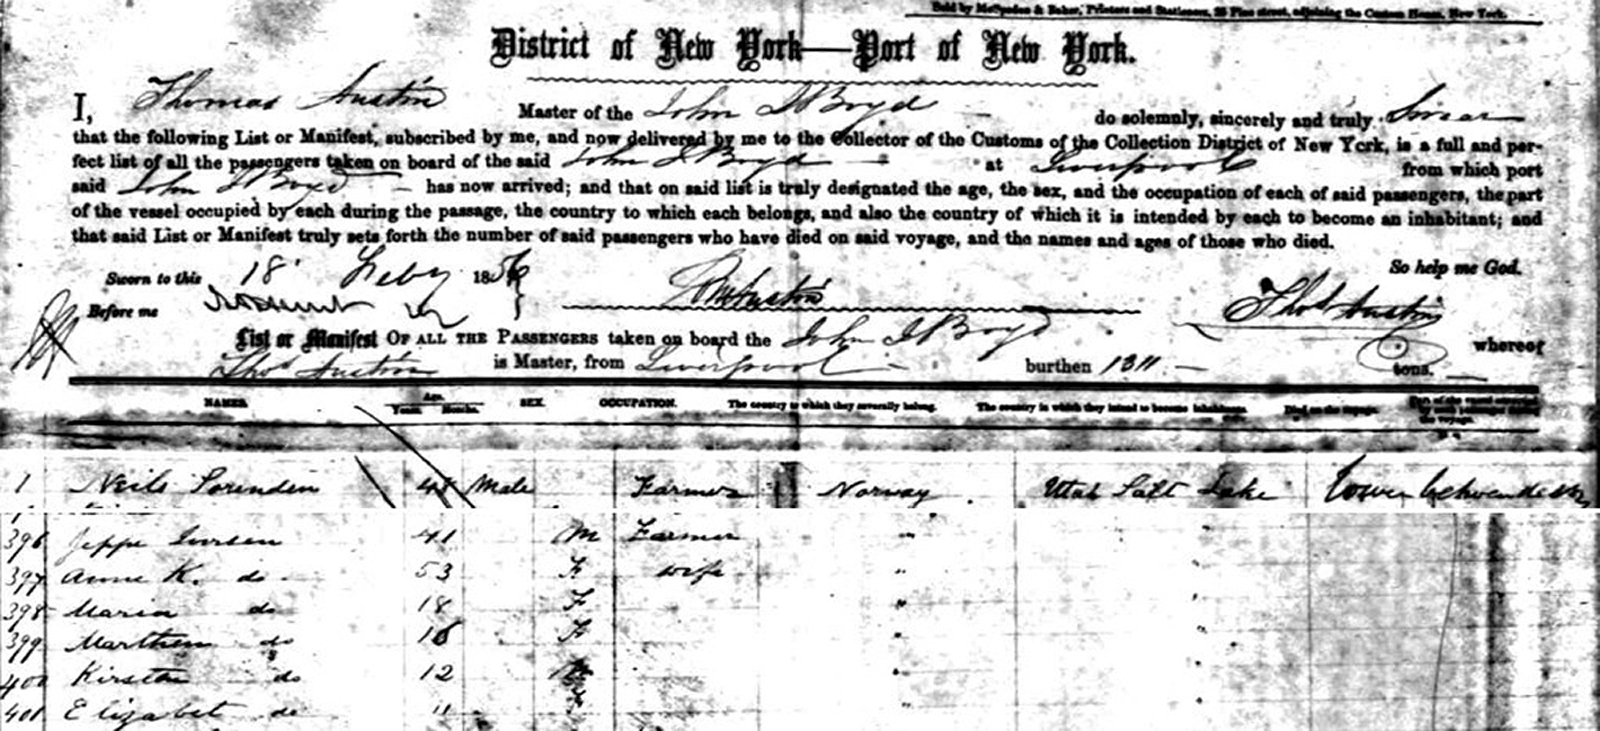 Sold by McSpedon & Baker, Printers and Stationers, 25 Pine street, adjoining the Custom House, New York.
District of New York—Port of New York.
I, Thomas Austin Master of the John J Boyd do solemnly, sincerely and truly Swear
that the following List or Manifest, subscribed by me, and now delivered by me to the Collector of the Customs of the Collection District of New York, is a full and per-
fect list of all the passengers taken on board of the said John J Boyd at Liverpool from which port
said John J Boyd has now arrived; and that on said list is truly designated the age, the sex, and the occupation of each of said passengers, the part
of the vessel occupied by each during the passage, the country to which each belongs, and also the country of which it is intended by each to become an inhabitant; and
that said List or Manifest truly sets forth the number of said passengers who have died on said voyage, and the names and ages of those who died.
So help me God.
Sworn to this 18 Feby 1856
Before me
Thos Austin
List or Manifest OF ALL THE PASSENGERS taken on board the John J Boyd whereof
Thos Austin is Master, from Liverpool burthen 1311 tons.
NAMES. Age. Years. Months. SEX. OCCUPATION. The country to which they severally belong. The country in which they intend to become inhabitants. Died on the voyage. Part of the vessel occupied by each passenger during the voyage.
1 Neils Sorenden Male Farmer Norway Utah Salt Lake Lower between decks
396 Jeppe Iversen 41 M Farmer "
397 Anne K. do 53 F wife " "
398 Maria do 18 F " "
399 Marthem do F " "
400 Kirsten do 12 " "
401 Elizabet do 11 F " "